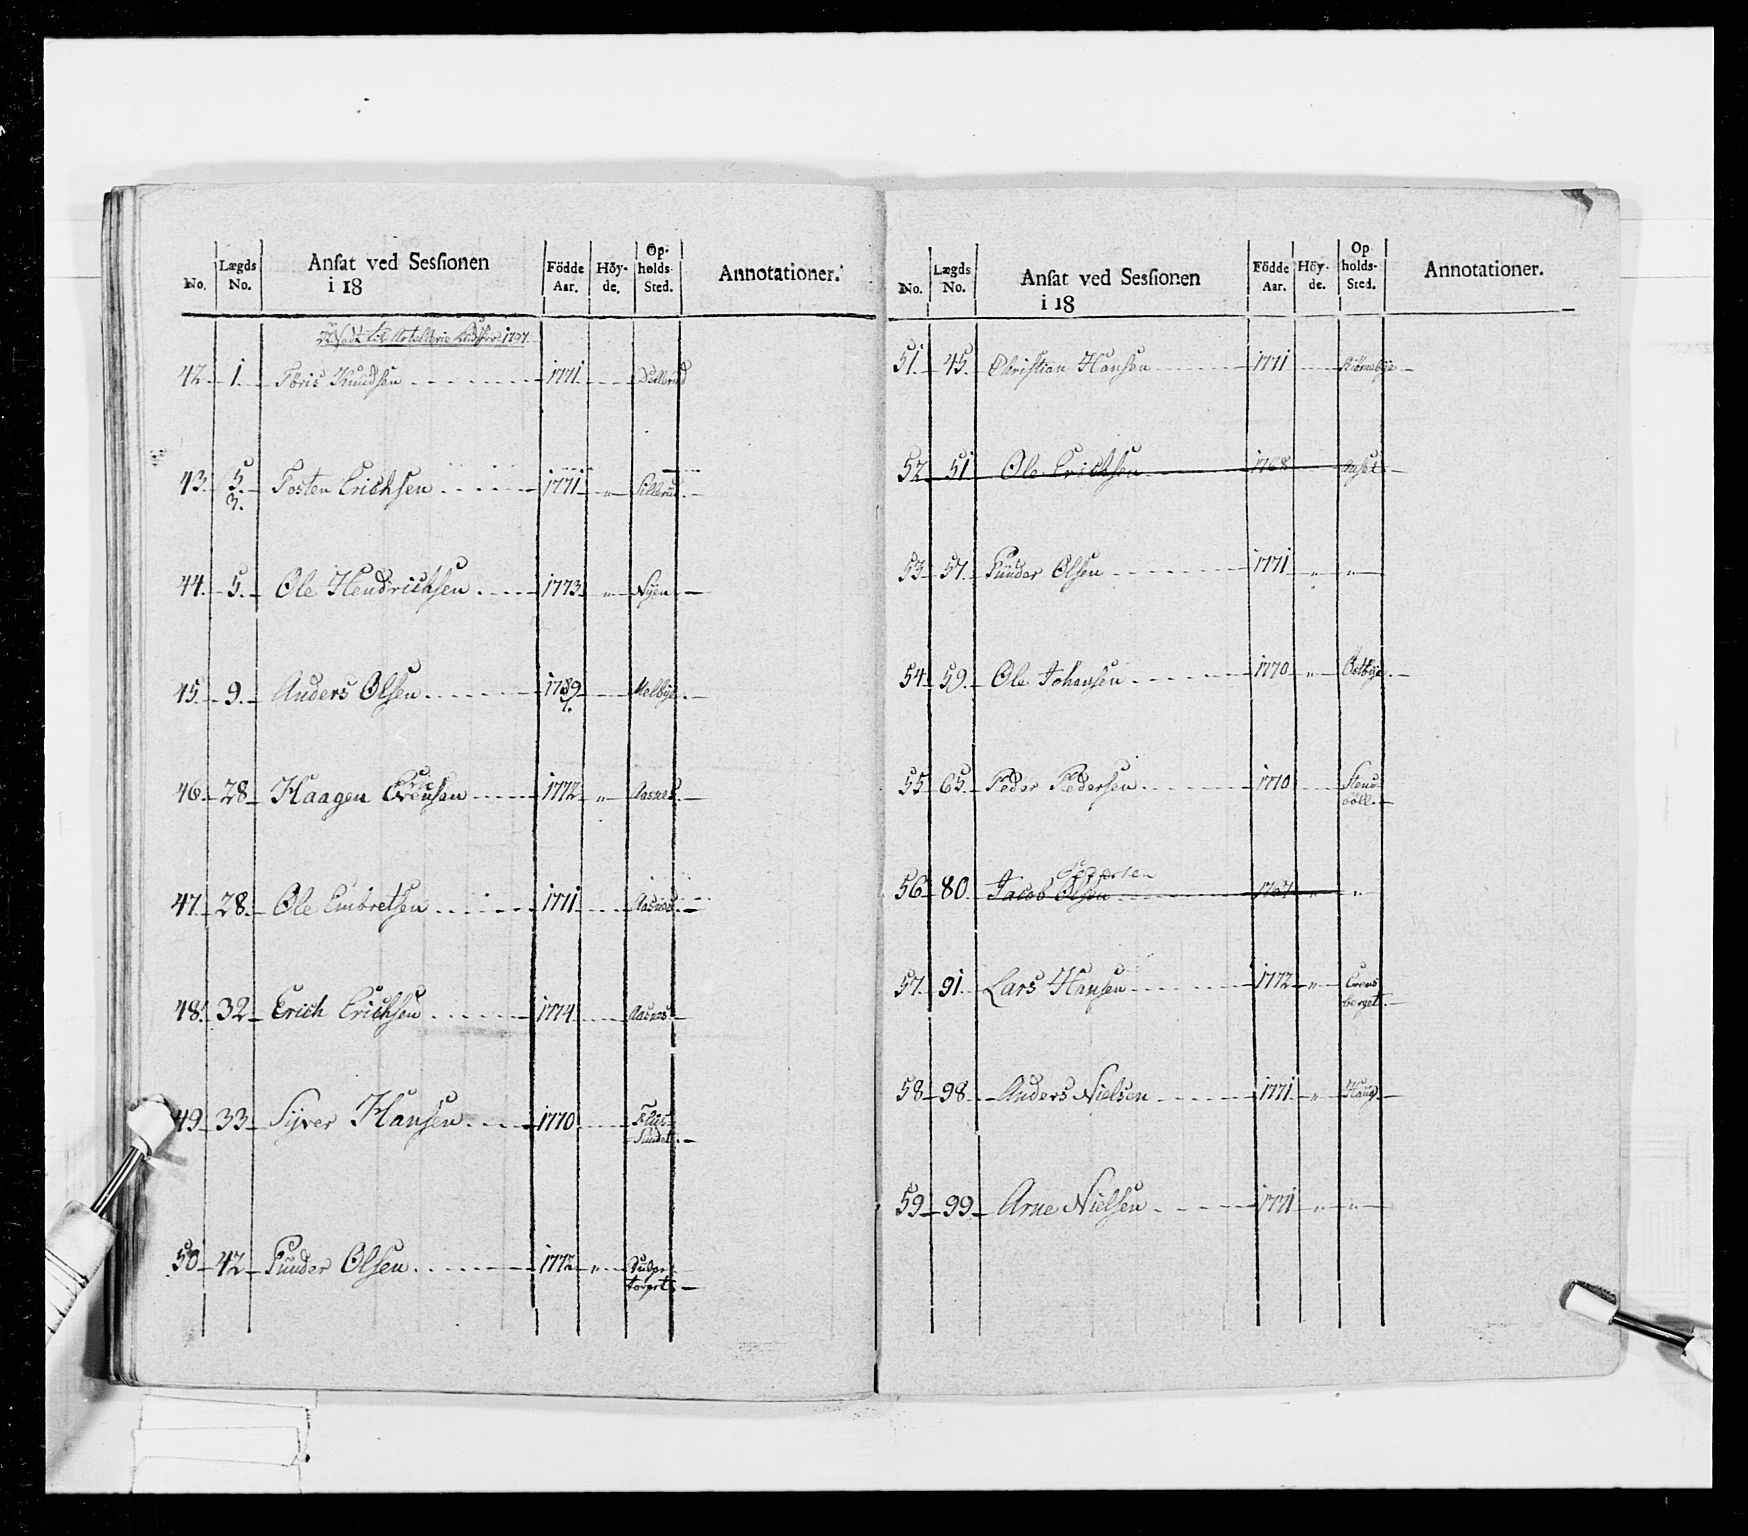 No. Lægds No. Ansat ved Sessionen i 18 Födde Aar. Höy-de. Op-holds-Sted. Annotationer.
Ansat til Artellerie Kudsker 1797.
42. 1. Töris Knudsen 1771
43. 5. 3. Tosten Erichsen 1771 " Sillerud
44. 5. Ole Hendrichsen 1773 " Nyen
45. 9. Anders Olsen Melbye
46. 28 Haagen Evensen 1772 " Aasnes
47. 28. Ole Embretsen 1771 Aasnes
48. 32 Erich Erichsen 1774 Aasnes
49 33 Syver Hansen 1770 Flise
Sundet
50 42 Gunder Olsen 1772 "
No. Lægds No. Ansat ved Sessionen i 18 Födde Aar. Höy-de. Op holds-Sted. Annotationer.
51. 45. Christian Hansen 1771
52 51 Ole Erichsen 1768
53 57. Gunder Olsen 1771 " "
54 59. Ole Johansen 1770 " Östbye
55 65. Peder Pedersen 1770
56 80. Jacob Olsen 1767 " "
57. 91. Lars Hansen 1772 "
berget
58 98. Anders Nielsen 1771 " Haug
59 99 Arne Nielsen 1771 " "